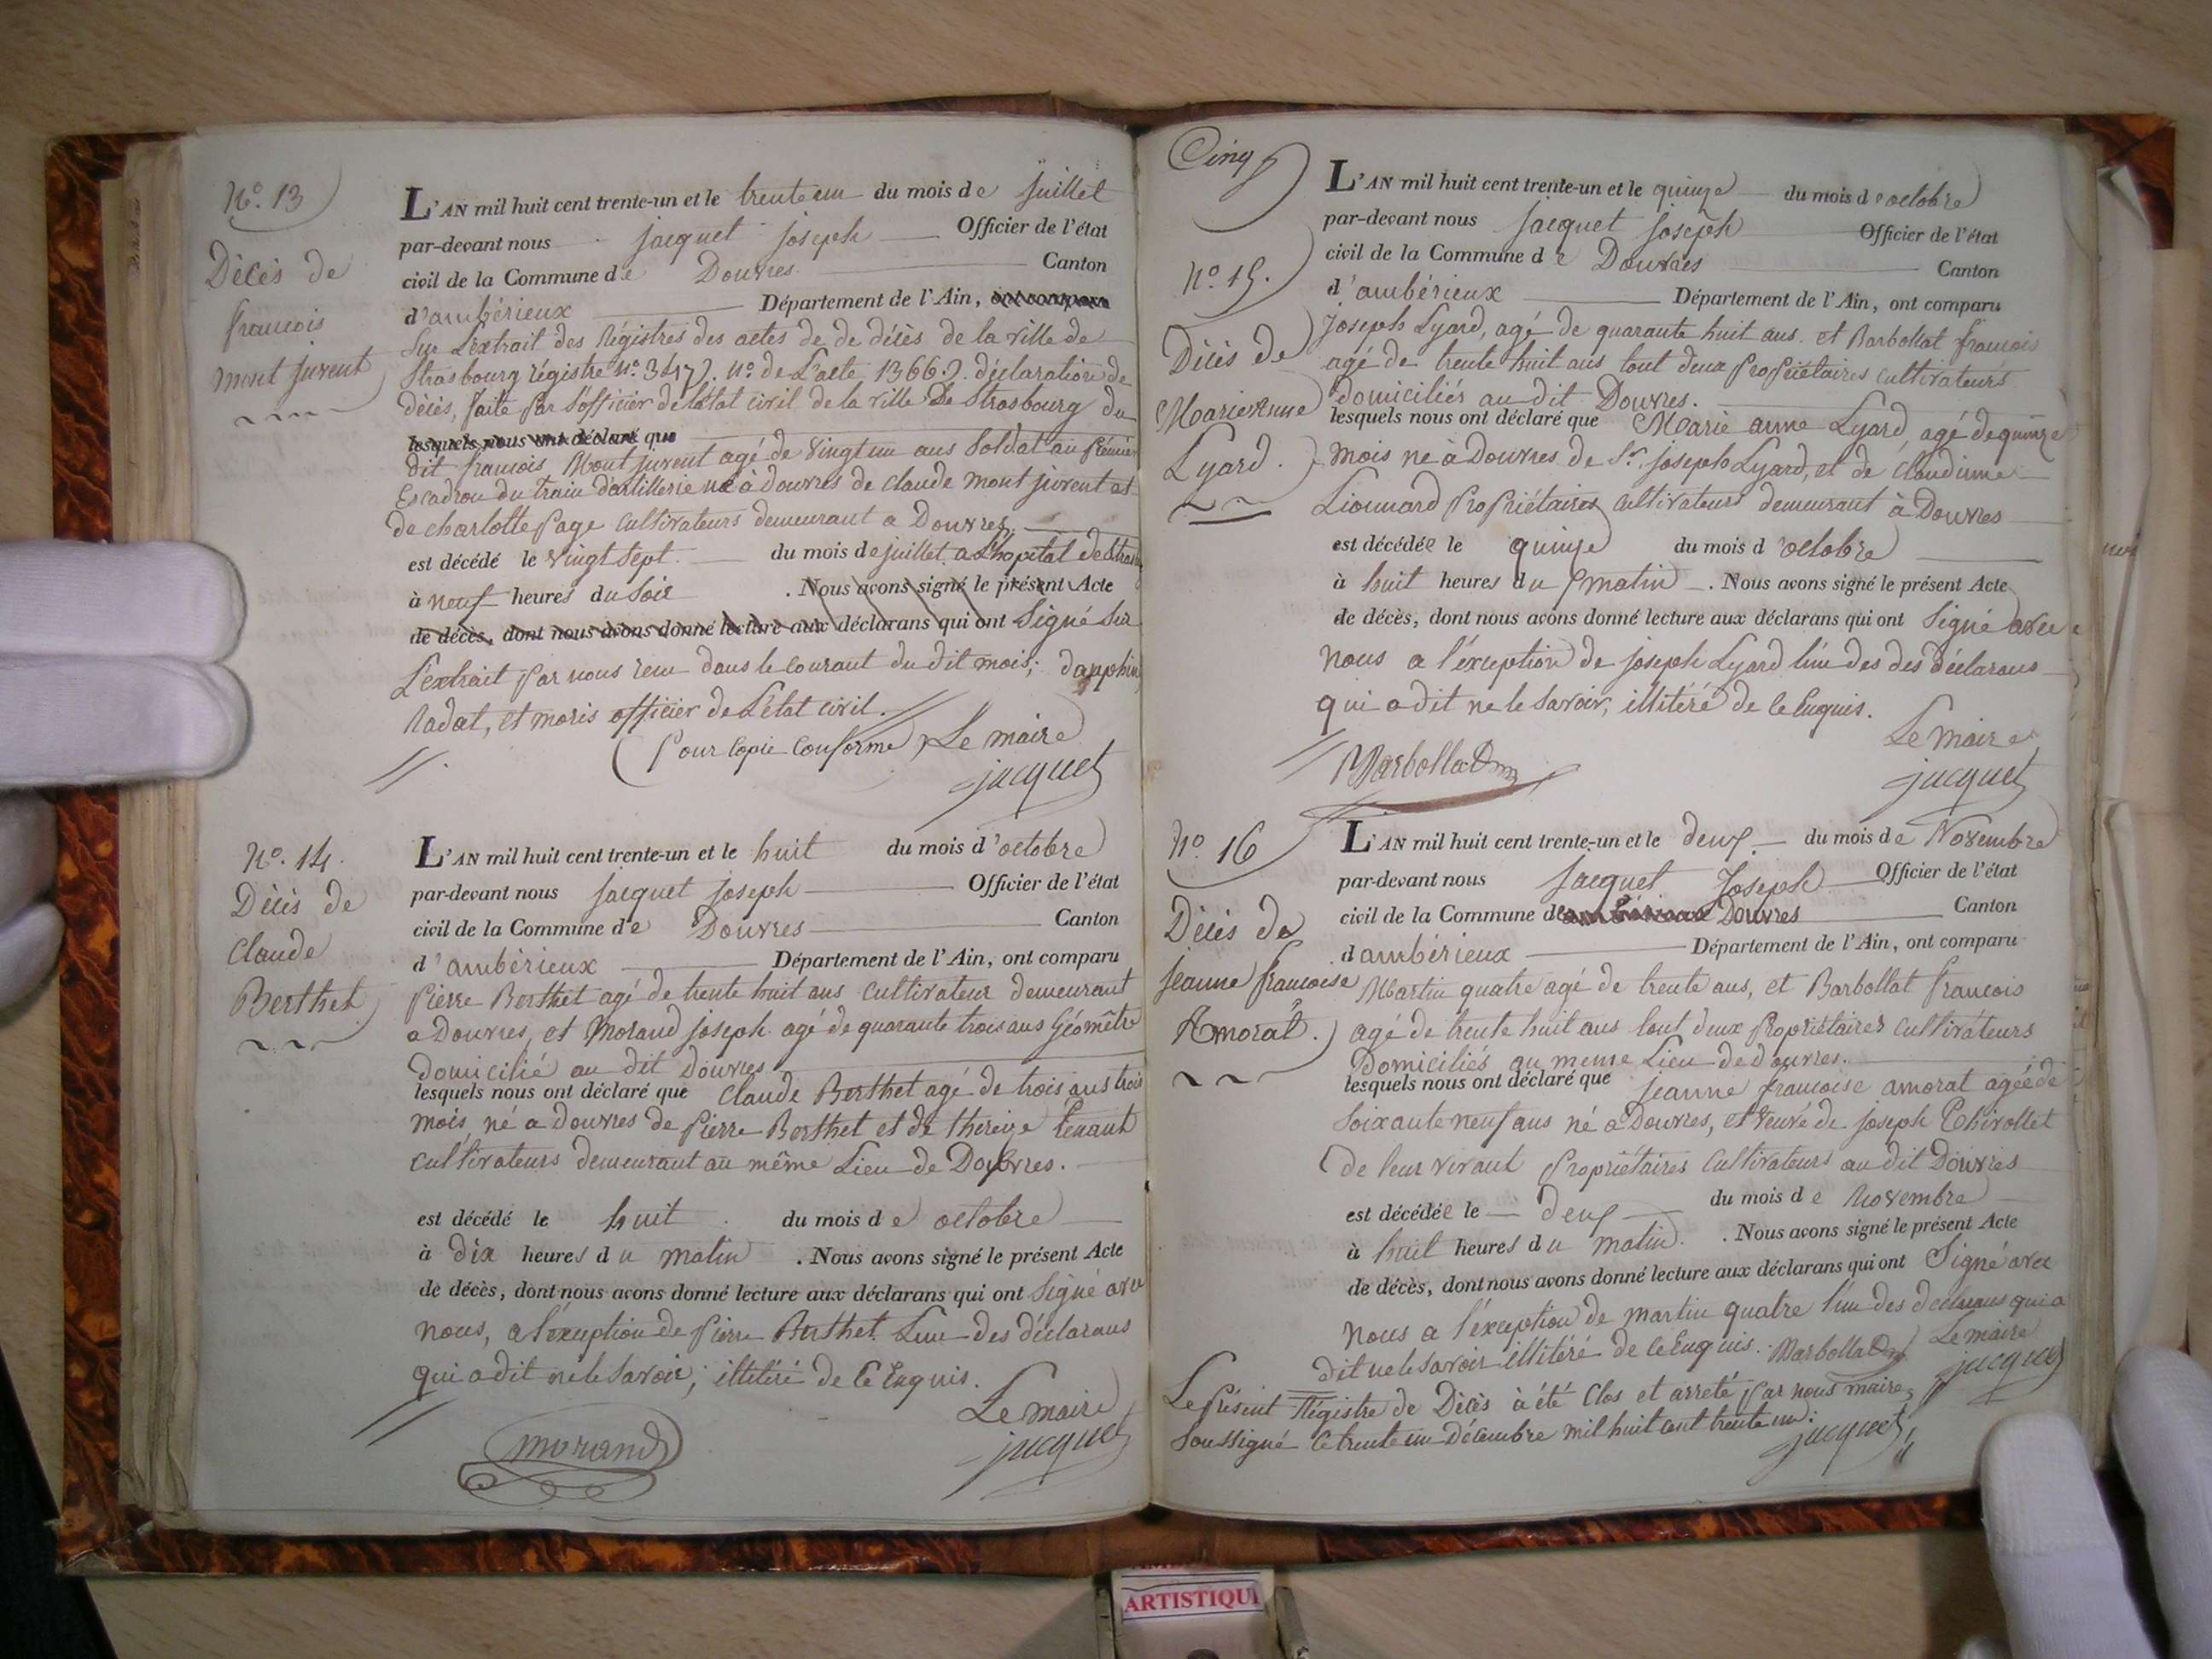 N.º 13
Décès de
francois
mont juvent
L'AN mil huit cent trente-un et le trente un du mois de juillet
par-devant nous jacquet joseph Officier de l'état
civil de la Commune de Douvres Canton
d'ambérieux Département de l'Ain, ont comparu
Sur L'extrait des Régistres des actes de de décès de la ville de
Strasbourg régistre N.º 347). n.º de L'acte 1366). déclaration de
décès, faite par l'officier de l'état civil de la ville de Strasbourg du
lesquels nous ont déclaré que
dit francois Mont juvent agé de vingt un ans Soldat au premier
Escadron du train d'artillerie né à Douvres de claude mont juvent et
de charlotte page cultivateurs demeurant a Douvres.
est décédé le vingt sept. du mois de juillet a L'hopital de Stras
à neuf heures du Soir . Nous avons signé le présent Acte
de décès, dont nous avons donné lecture aux déclarans qui ont Signé Sur
L'extrait par nous reçu dans le courant du dit mois;
Radat, et moris officier de L'état civil.
(Pour Copie Conforme) Le maire
jacquet
N.º 14.
Décès de
Claude
Berthet
L'AN mil huit cent trente-un et le huit du mois d'octobre
par-devant nous jacquet joseph Officier de l'état
civil de la Commune de Douvres Canton
d'ambérieux Département de l'Ain, ont comparu
Pierre Berthet agé de trente huit ans cultivateur demeurant
a Douvres, et Morand joseph agé de quarante trois ans Géomêtre
domicilié au dit Douvres
lesquels nous ont déclaré que Claude Berthet agé de trois ans trois
mois, né a Douvres de Pierre Berthet et de thereze tenant
cultivateurs demeurant au même Lieu de Douvres.
est décédé le huit du mois de octobre
à dix heures du matin . Nous avons signé le présent Acte
de décès, dont nous avons donné lecture aux déclarans qui ont Signé avec
nous, a l'exception de Pierre Berthet L'un des déclarans
qui a dit ne le Savoir; illitéré de ce Enquis.
Le maire
jacquet
morand
Cinq
N.º 15.
Décès de
Marie Anne
Lyard.
L'AN mil huit cent trente-un et le quinze du mois de octobre
par-devant nous jacquet joseph Officier de l'état
civil de la Commune de Douvres Canton
d'ambérieux Département de l'Ain, ont comparu
Joseph Lyard, agé de quarante huit ans. et Barbollat francois
agé de trente huit ans tout deux Propriétaires cultivateurs
domiciliés au dit Douvres.
lesquels nous ont déclaré que Marie anne Lyard, agé de quinze
mois né à Douvres de Sr. joseph Lyard, et de claudinne
Lionnard Propriétaires cultivateurs demeurant à Douvres
est décédée le quinze du mois d'octobre
à huit heures du matin . Nous avons signé le présent Acte
de décès, dont nous avons donné lecture aux déclarans qui ont Signé avec
nous a l'éxception de joseph Lyard l'un des des déclarans
qui a dit ne le Savoir, illitéré de ce Enquis.
Le Maire
Barbollat jacquet
N.º 16
Décès de
jeanne francoise
Amorat.
L'AN mil huit cent trente-un et le deux du mois de Novembre
par-devant nous Jacquet Joseph Officier de l'état
civil de la Commune de Douvres Canton
d'ambérieux Département de l'Ain, ont comparu
Martin quatre agé de trente ans, et Barbollat francois
agé de trente huit ans tout deux Propriétaires cultivateurs
Domiciliés au meme Lieu de Douvres.
lesquels nous ont déclaré que jeanne francoise amorat agée de
Soixante neuf ans né a Douvres, et veuve de joseph Thirollet
de leur vivant Propriétaires cultivateurs au dit Douvres
est décédée le deux du mois de Novembre
à huit heures du matin. . Nous avons signé le présent Acte
de décès, dont nous avons donné lecture aux déclarans qui ont Signé avec
nous a l'éxception de martin quatre l'un des declarans qui a
dit ne le Savoir illitéré de ce Enquis. Barbollat Le maire
jacquet
Le Présent Régistre de Décès à été Clos et arreté par nous maire
Soussigné le trente un Décembre mil huit cent trente un:
jacquet
ARTISTIQU